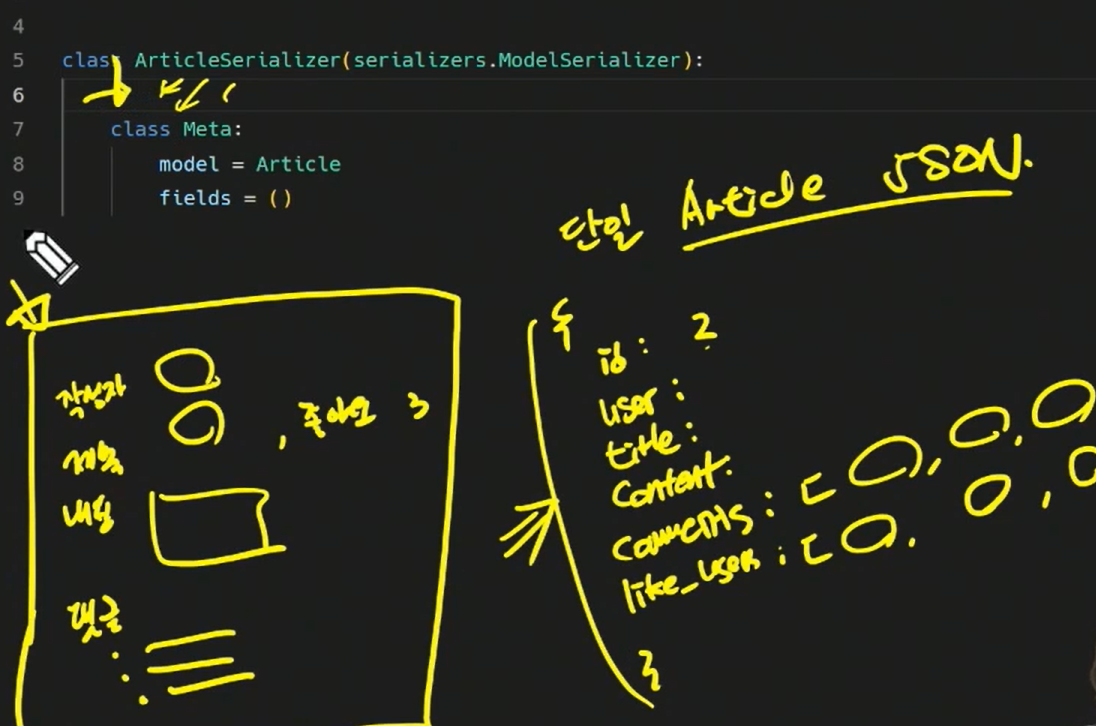 4
5 class ArticleSerializer(serializers.ModelSerializer):
6
7 class Meta:
8 model = Article
9 fields = ()
단일 Article JSON.
작성자
제목 , 좋아요 3
내용
댓글
{
id : 2
user :
title :
content :
comments : [ , ,
like_users : [ , ,
}